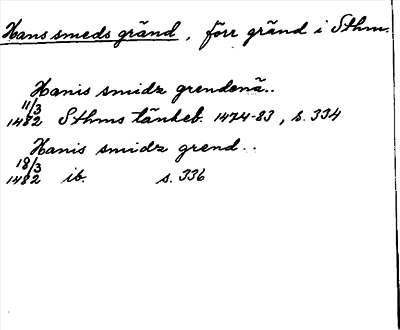 Hans smeds gränd, förr gränd i Sthm.
Hanis smidz grendenä..
11/3 1482 Sthms tänkeb. 1474-83, s. 334
Hanis smidz grend..
18/3 1482 ib. s. 336